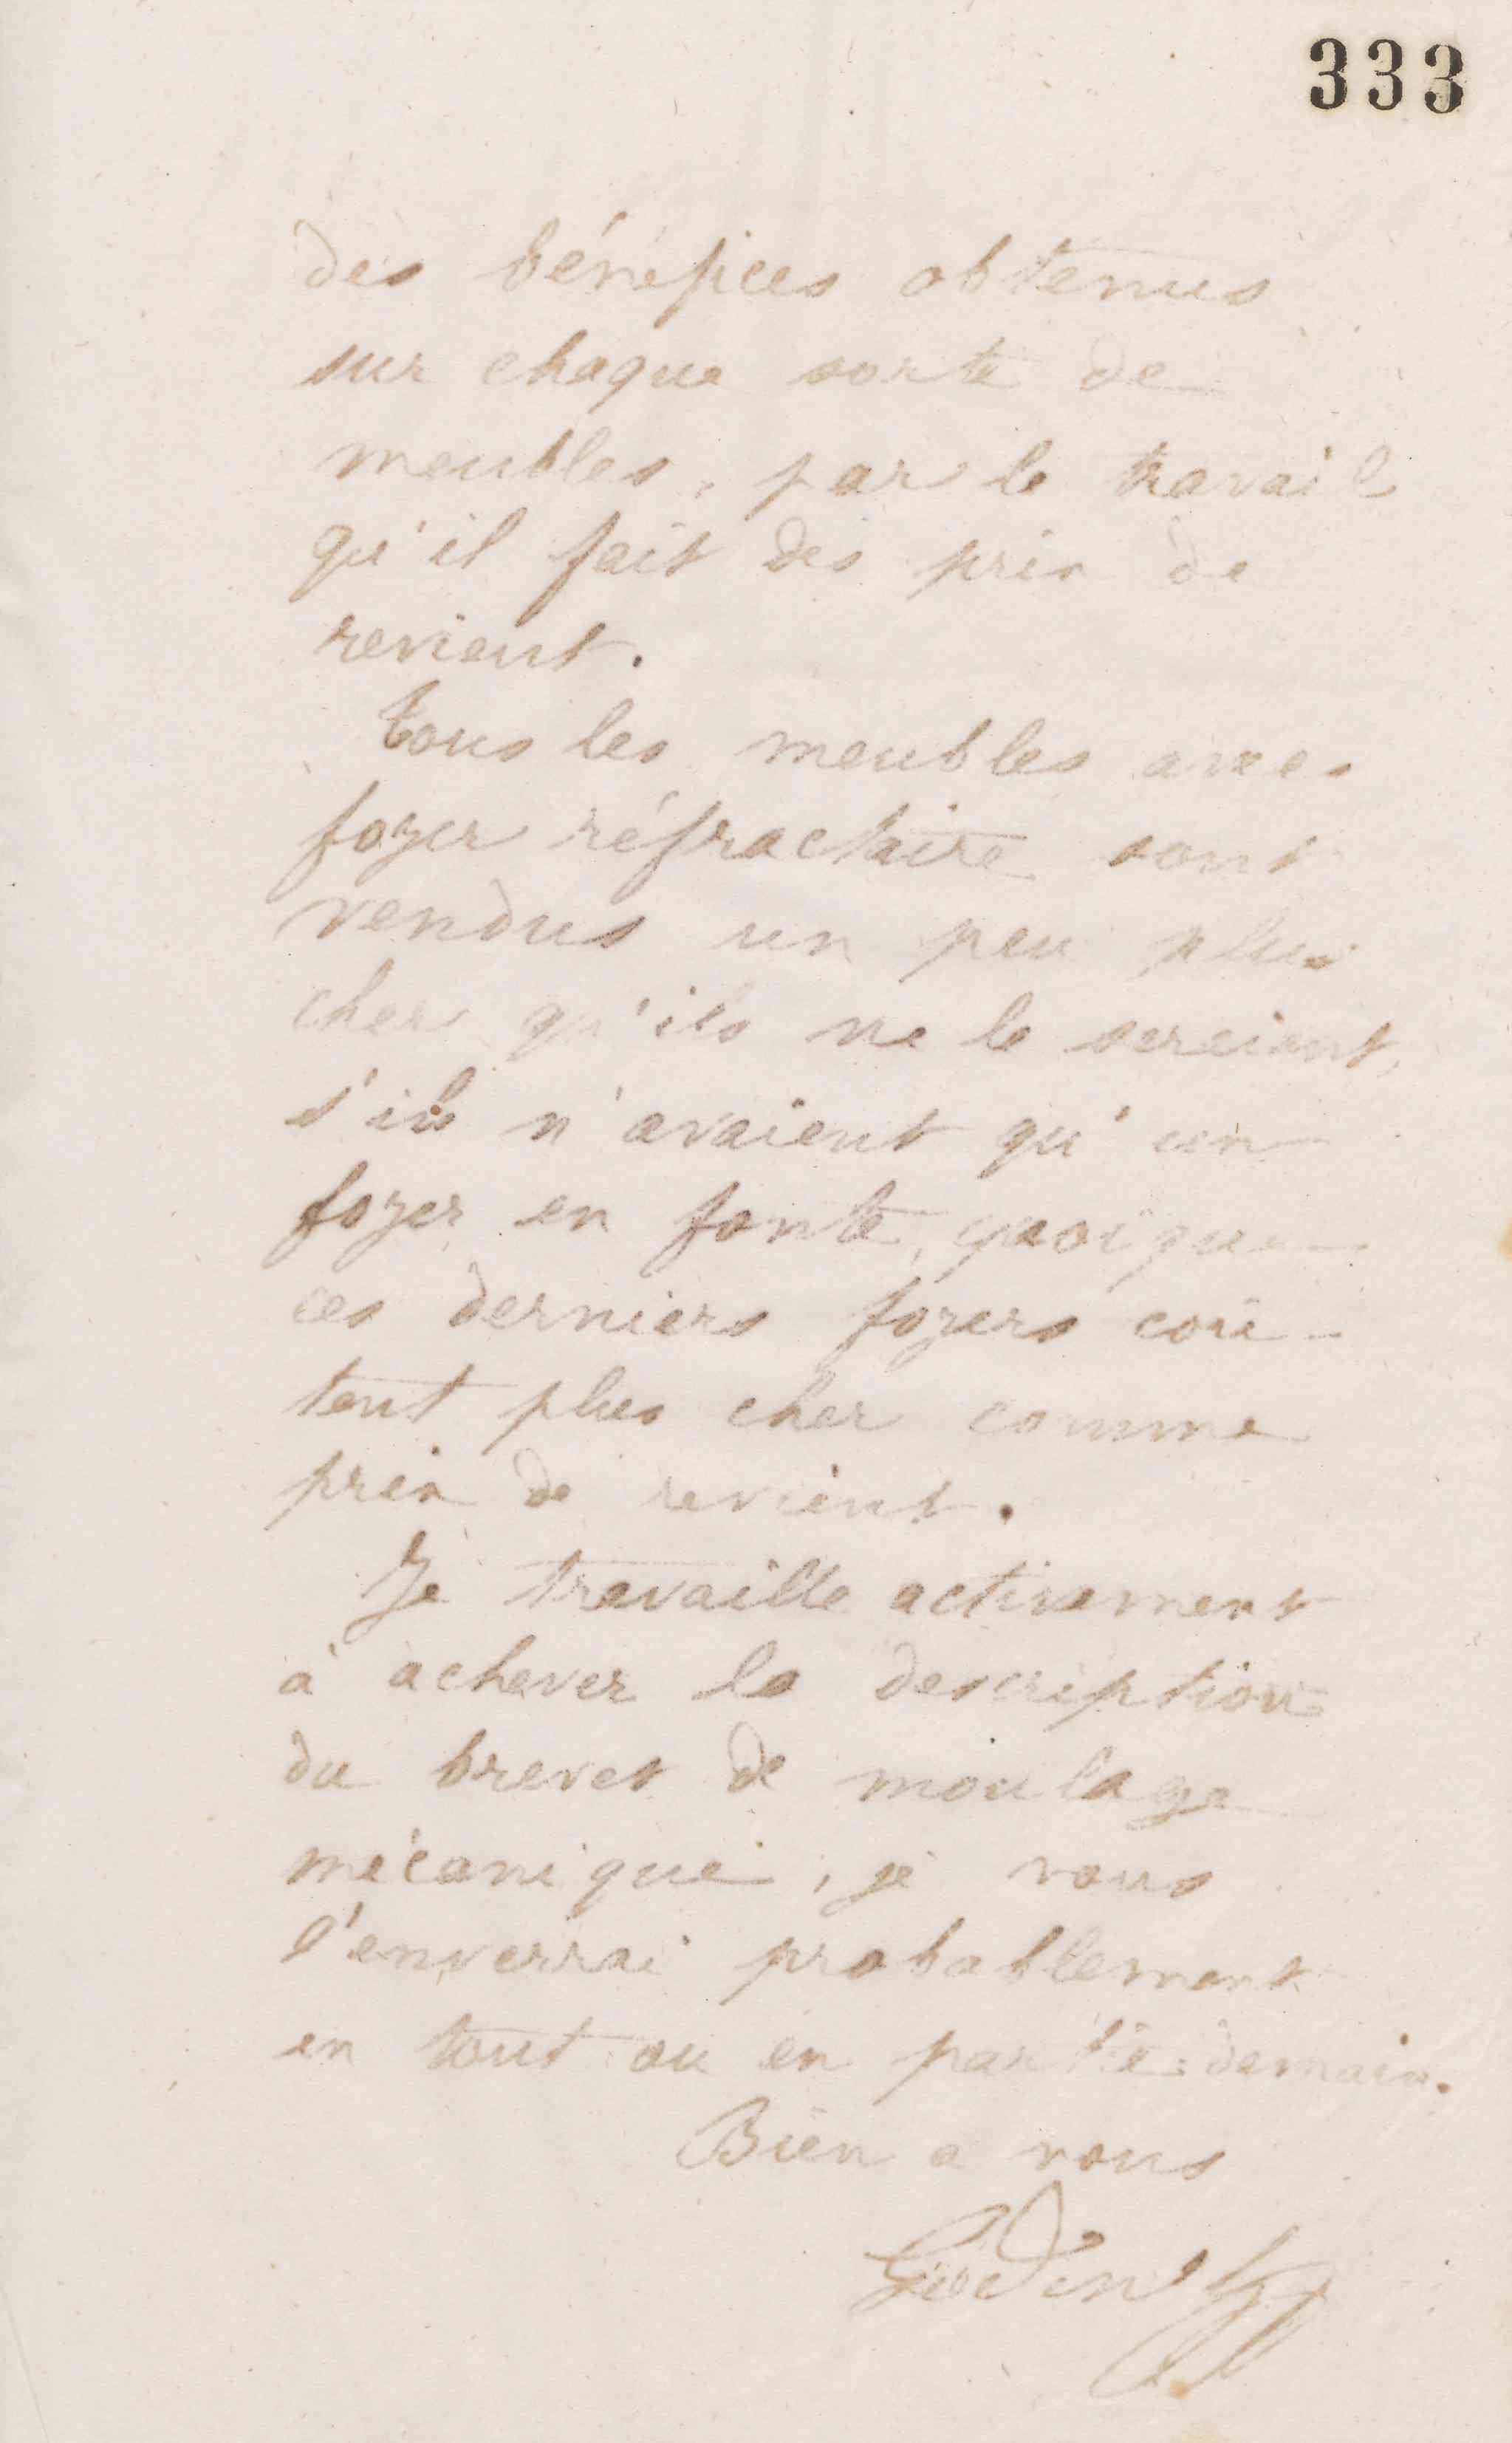 333
des bénéfices obtenus
sur chaque sorte de
meubles, par le travail
qu'il fait des prix de
revient.
Tous les meubles avec
foyer réfractaire sont
vendus un peu plus
cher qu'ils ne le seraient,
s'ils n'avaient qu'un
foyer en fonte, quoique
ces derniers foyers coû-
tent plus cher comme
prix de revient.
Je travaille activement
à achever la description
du brevet de moulage
mécanique, je vous
l'enverrai probablement
en tout ou en partie demain.
Bien a vous
Godin